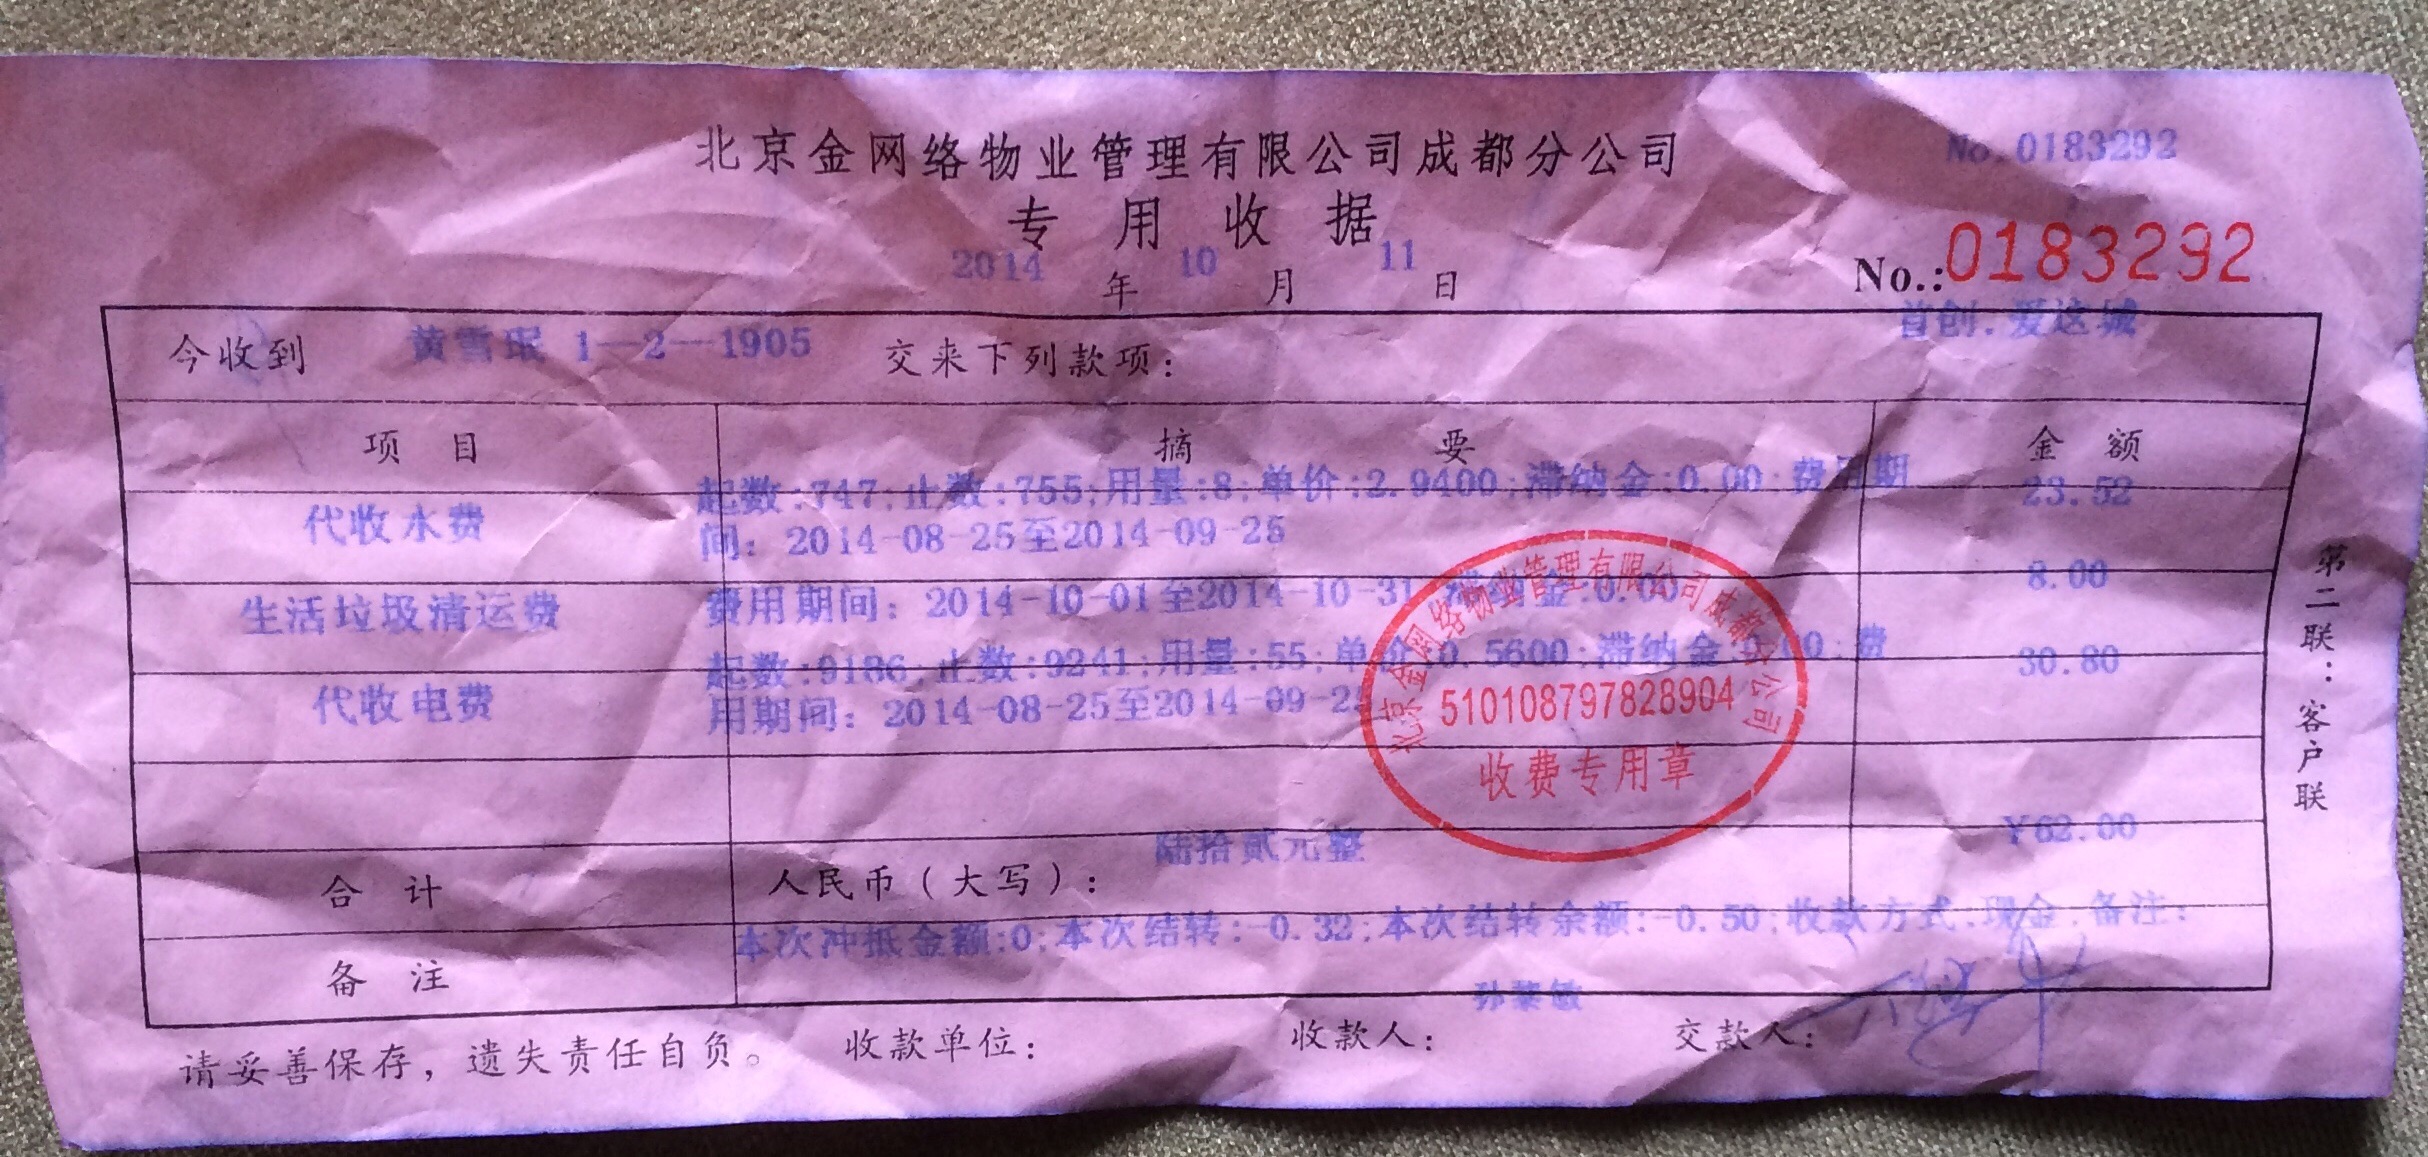 北京金网络物业管理有限公司成都分公司
No.0183292
专用收据
2014年10月11日
No.:0183292
首创.爱这城
今收到 黄雪珉 1-2-1905 交来下列款项:
项目 摘要 金额
代收水费 起数:747;止数:755;用量:8;单价:2.9400;滞纳金:0.00;费用期 23.52
间: 2014-08-25至2014-09-25
生活垃圾清运费 费用期间: 2014-10-01至2014-10-31;滞纳金:0.00 8.00
代收电费 起数:9186;止数:9241;用量:55;单价:0.5600;滞纳金:0.00;费 30.80
用期间: 2014-08-25至2014-09-25
北京金网络物业管理有限公司成都分公司
510108797828904
收费专用章
合计 人民币(大写): 陆拾贰元整 ¥62.00
备注 本次冲抵金额:0;本次结转:-0.32;本次结转余额:-0.50;收款方式:现金.备注:
请妥善保存,遗失责任自负。 收款单位: 收款人: 孙黎敏 交款人:
第二联:客户联